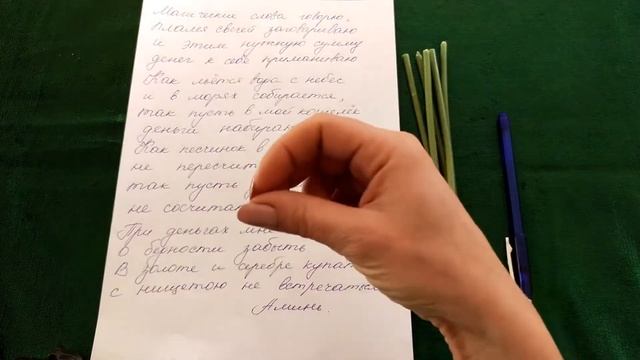 Магические слова говорю,
пламя свечей заговариваю
и этим нужную сумму
денег к себе приманиваю
Как льётся вода с небес
и в морях собирается,
так пусть в мой кошелёк
деньги
Как песчинок в
не
так пусть
не
При деньгах мне
о бедности забыть
В золоте и серебре
с нищетою не встречаться
Аминь.